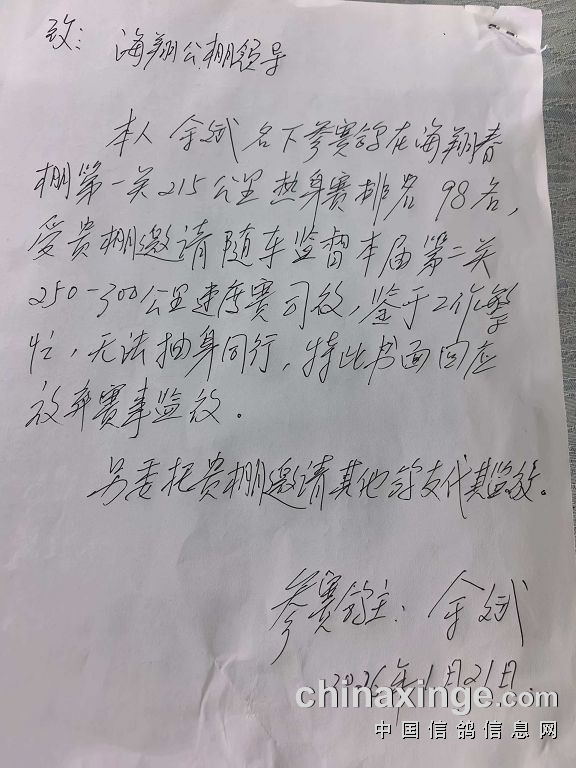 致：海翔公棚领导
本人余斌名下参赛鸽在海翔春
棚第一关215公里热身赛排名98名，
受贵棚邀请随车监督本届第二关
250-300公里速度赛司放，鉴于工作繁
忙，无法抽身同行，特此书面回应
放弃赛事监放。
另委托贵棚邀请其他鸽友代其监放。
参赛鸽主：余斌
2026年1月21日
chinaxinge.com
中国信鸽信息网